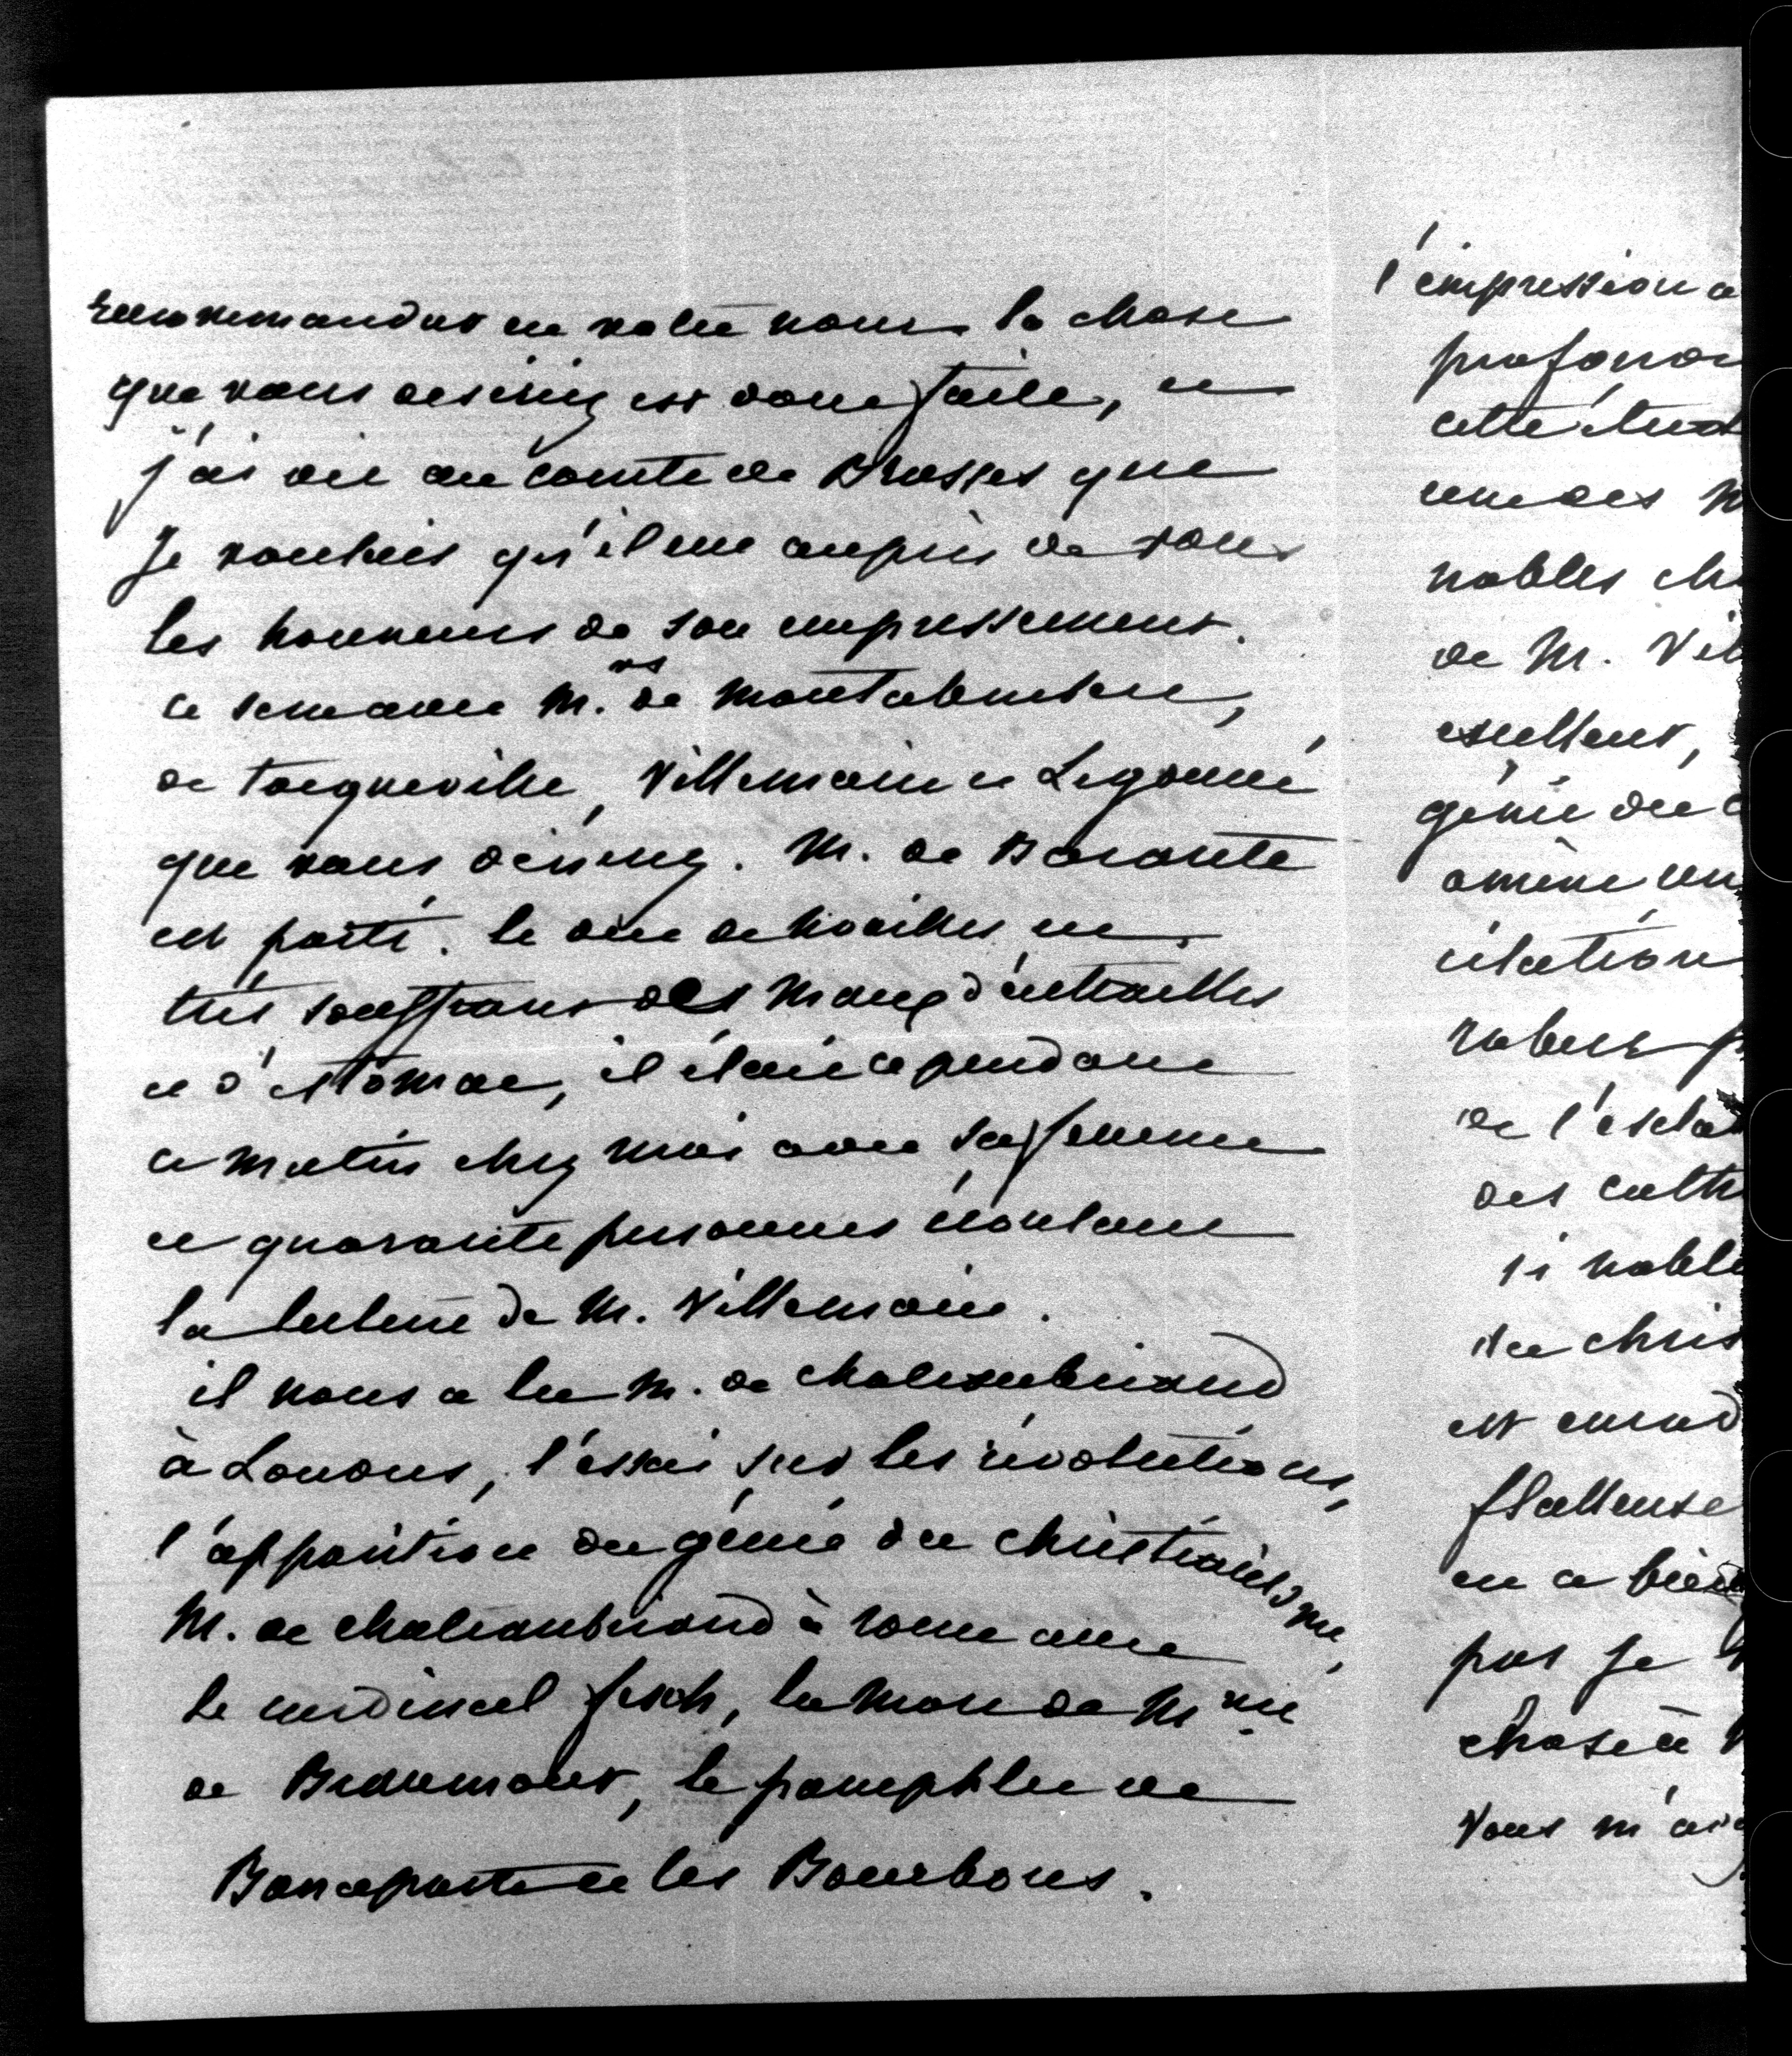 recommander en votre nom. la chose
que vous desiriez est donc faite, et
j'ai dit au comte de Brosses que
je voulais qu'il eut auprès de vous
les honneurs de son empressement.
ce semaine M.rs de Montalembert,
de Tocqueville, Villemain et Legouvé
que vous désirez. M. de Barante
est parti. le duc de Noailles est
très souffrant des maux d'entrailles
et d'estomac, il était cependant
ce matin chez moi avec sa femme
et quarante personnes écoutant
la lecture de M. Villemain.
il nous a lu M. de chateaubriand
à Londres, l'essai sur les révolutions,
l'apparition du génie du christianisme,
M. de chateaubriand à rome avec
le cardinal fesch, la mort de Mme
de Beaumont, le pamphlet de
Bonaparte et les Bourbons.
l'impression a
profon
cette étud
une des
nobles ch
de M. Vil
excellent,
génie du c
amène un
citation
de l'escla
des cult
si noble
du chris
est
flatteuse
en a bien
pas je
chose à
vous m'av